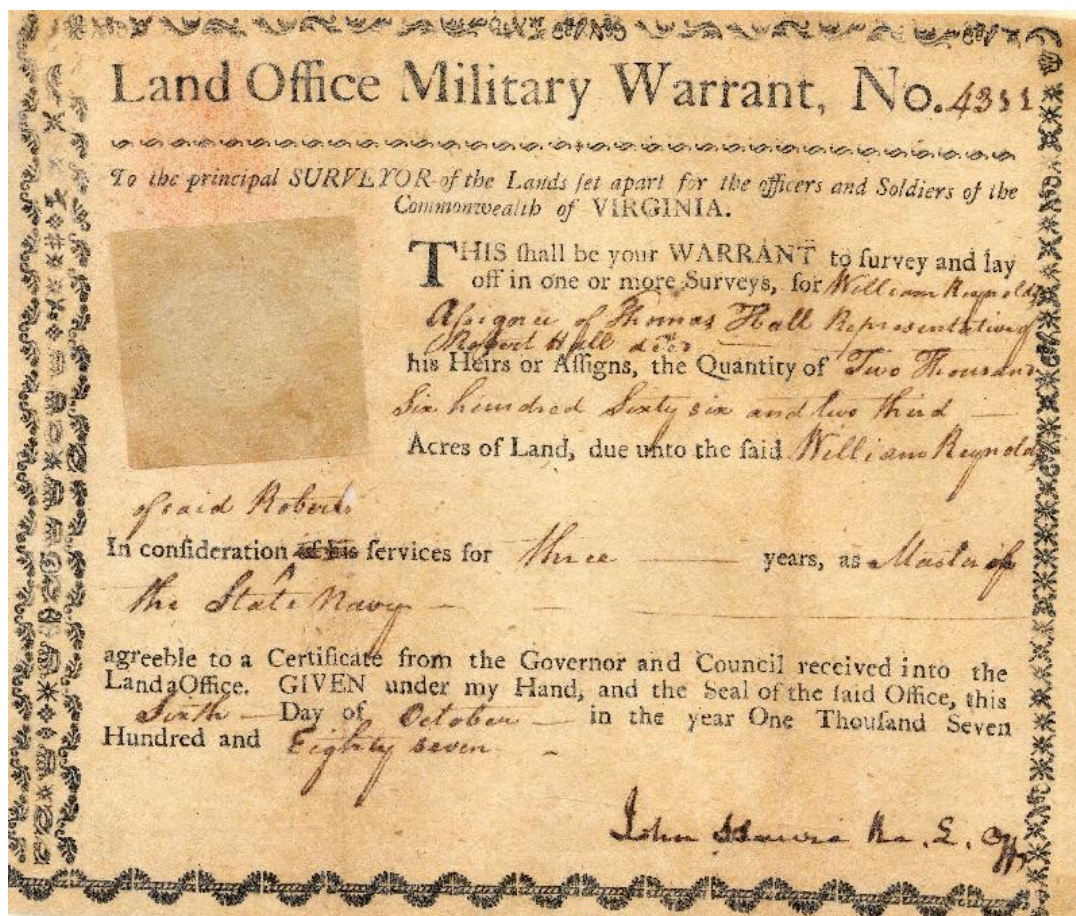 Land Office Military Warrant, No.
To the principal SURVEYOR of the Lands ſet apart for the officers and Soldiers of the
Commonwealth of VIRGINIA.
THIS ſhall be your WARRANT to ſurvey and lay
off in one or more Surveys, for William Reynolds
Aſsignee of Thomas Hall Representative of
Robert Hall decd
his Heirs or Aſſigns, the Quantity of Two Thousand
Six hundred Sixty six and two third
Acres of Land, due unto the ſaid William Reynolds
of said Roberts
In conſideration of his ſervices for three years, as Master of
the State Navy
agreeable to a Certificate from the Governor and Council received into the
Land Office. GIVEN under my Hand, and the Seal of the ſaid Office, this
Sixth Day of October in the year One Thouſand Seven
Hundred and Eighty seven
John Harvie Re. L. Off